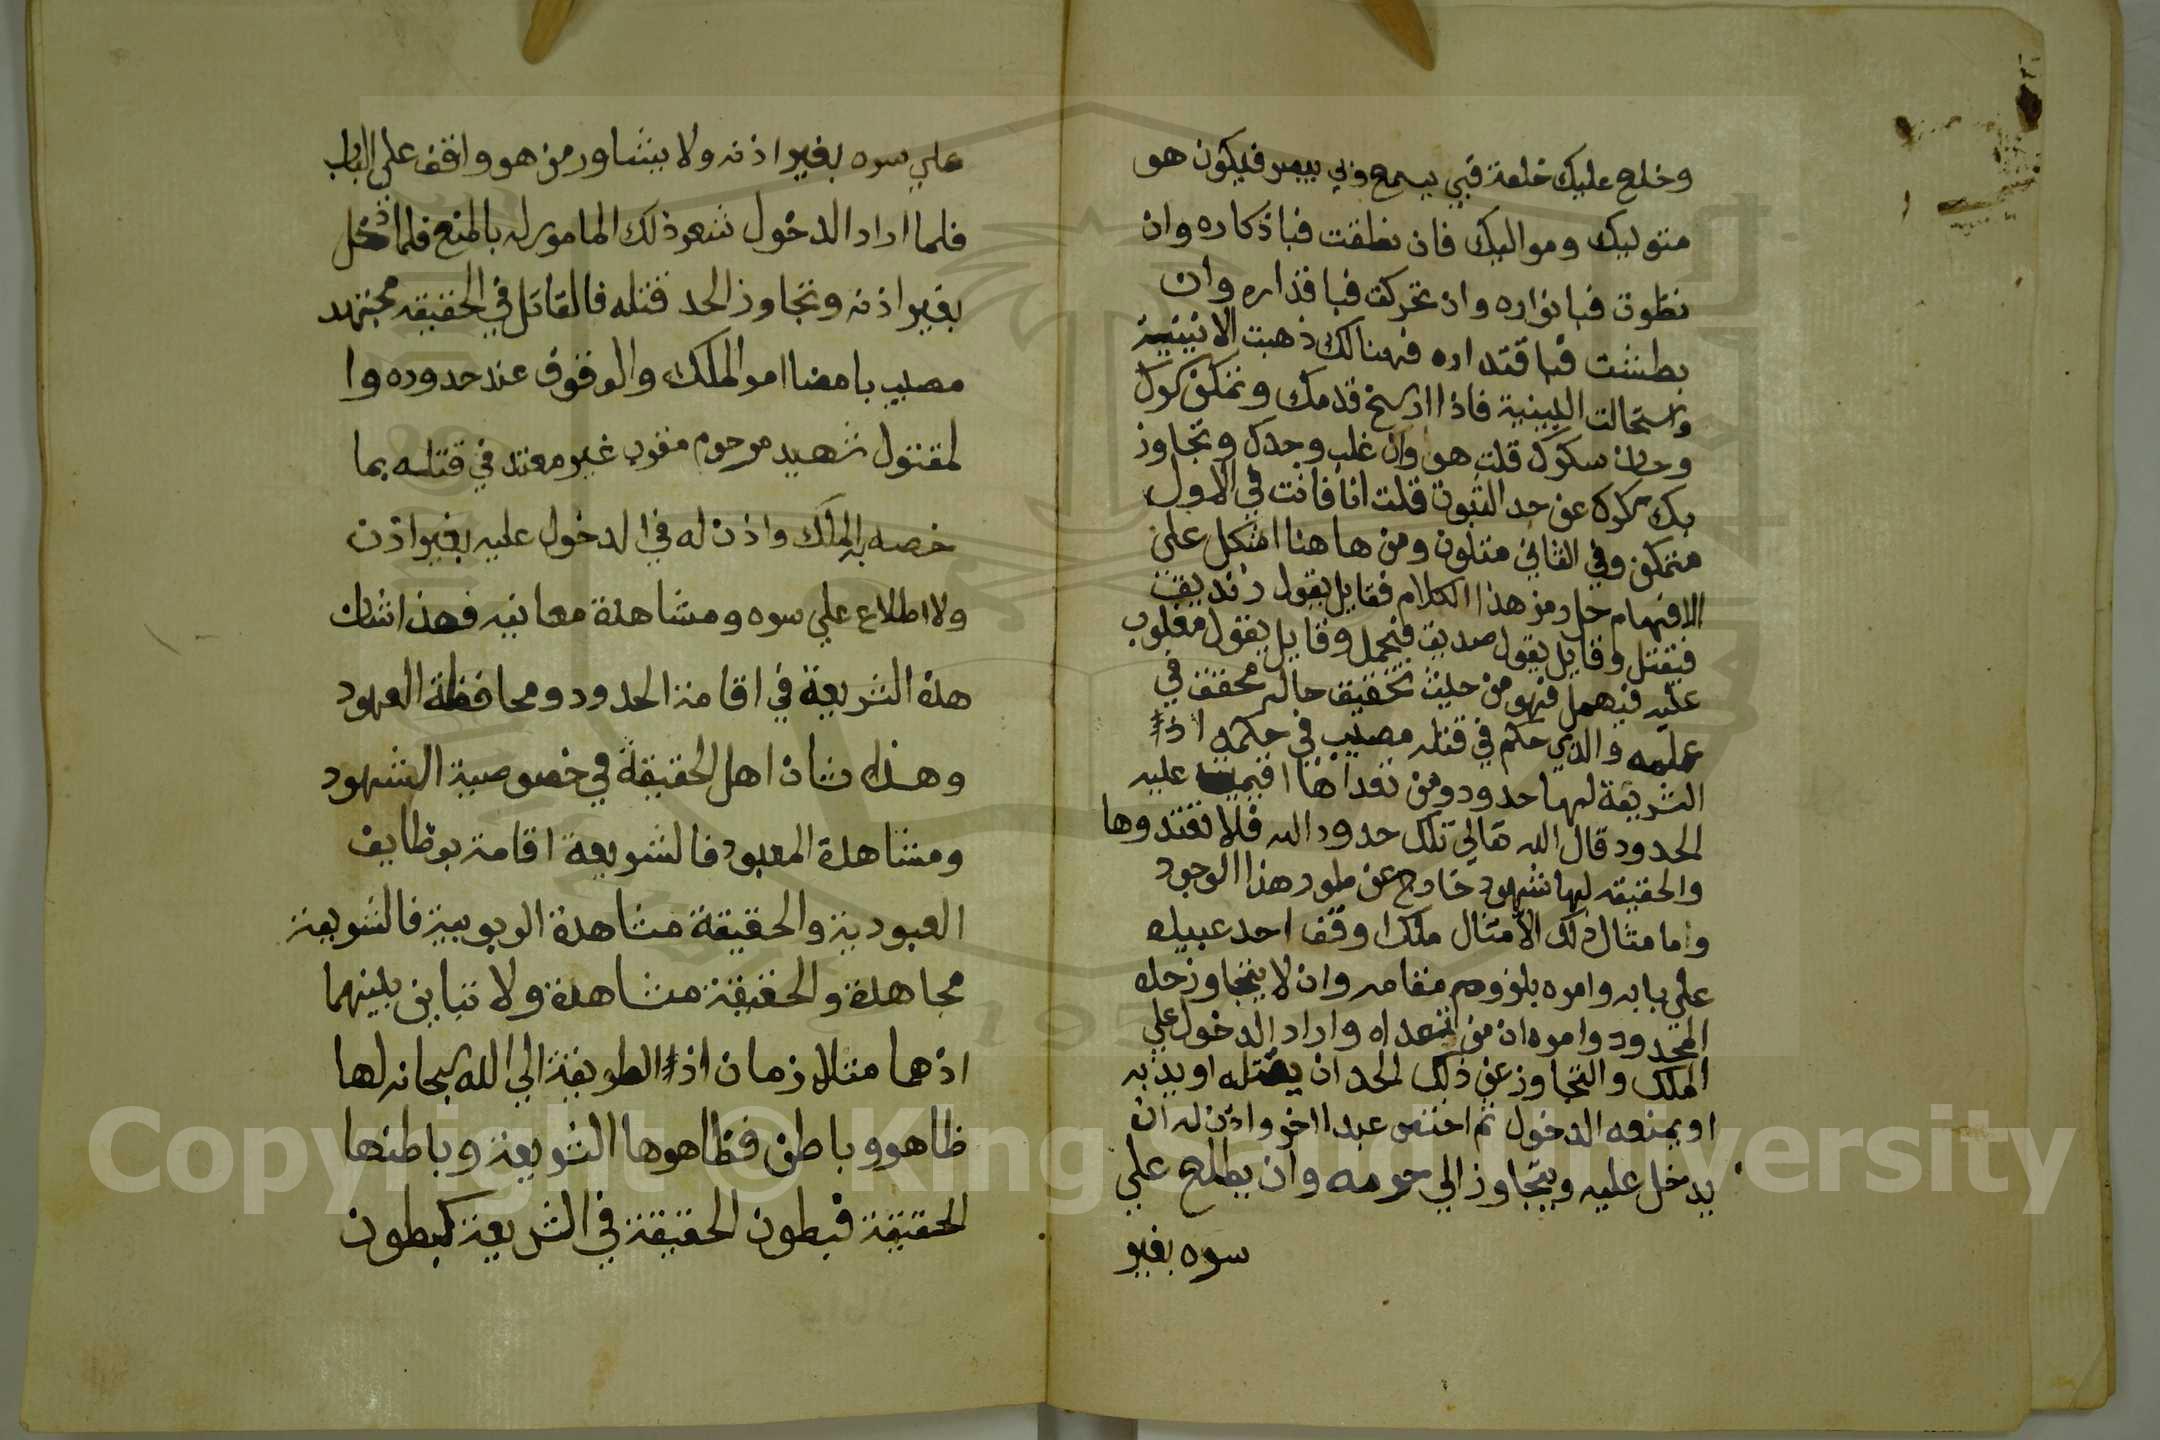 وخلع عليك خلعة فبي يسمع وبي يبصر فيكون هو
متوليك ومواليك فان نطقت فباذكاره وان
نظرت فبانواره وان تحركت فباقداره وان
بطشت فباقتداره فهنالك ذهبت الاثنينية
واستحالت البينية فاذا ارسخ قدمك وتمكن
وحان سكرك قلت هو وان غلب وجدك وتجاوز
بك سكرك عن حد الثبوت قلت انا فانت في الاول
متمكن وفي الثاني متلون ومن هاهنا اشكل علي
الافهام حل رمز هذا الكلام فقايل يقول زنديق
فيقتل وقايل يقول صديق فيحمل وقايل يقول مغلوب
عليه فيهمل فهو من حيث تحقيق حاله محقق في
علمه والذي حكم في قتله مصيب في حكمه اذ
الشريعة لها حدود ومن تعداها اقيمت عليه
الحدود قال الله تعالي تلك حدود الله فلا تعتدوها
والحقيقه لها شهود خارج عن طور هذا الوجود
واما مثال ذلك الامثال ملك اوقف احد عبيده
علي بابه وامره بلزوم مقامه وان لا يتجاوز حده
المحدود وامره ان من تعداه واراد الدخول علي
الملك والتجاوز عن ذلك الحد ان يقتله او يذبه
او يمنعه الدخول ثم اختص عبدا اخر واذن له ان
يدخل عليه ويتجاوز الي حرمه وان يطلع علي
سره بغير
علي سره بغير اذنه ولا يشاور من هو واقف علي الباب
فلما اراد الدخول شعر ذلك المامور له بالمنع فلما دخل
بغير اذنه وتجاوز الحد قتله فالقاتل في الحقيقه مجتهد
مصيب بامضا امر الملك والوقوف عند حدوده وا
لمقتول شهيد مرحوم مقرب غير معتد في قتله بما
خصه به الملك واذن له في الدخول عليه بغير اذن
ولا اطلاع علي سره ومشاهدة معانيه فهذا شان
هذه الشريعة في اقامة الحدود ومحافظة العهود
وهذه شان اهل الحقيقة في خصوصية الشهود
ومشاهدة المعبود فالشريعة اقامة بوظايف
العبودية والحقيقة مشاهدة الربوبية فالشريعة
مجاهدة والحقيقة مشاهدة ولا تباين بينهما
اذهما متلازمان اذ الطريقة الي الله سبحانه لها
ظاهر وباطن فظاهرها الشريعة وباطنها
الحقيقة فبطون الحقيقة في الشريعة كبطون
Copyright © King Saud University